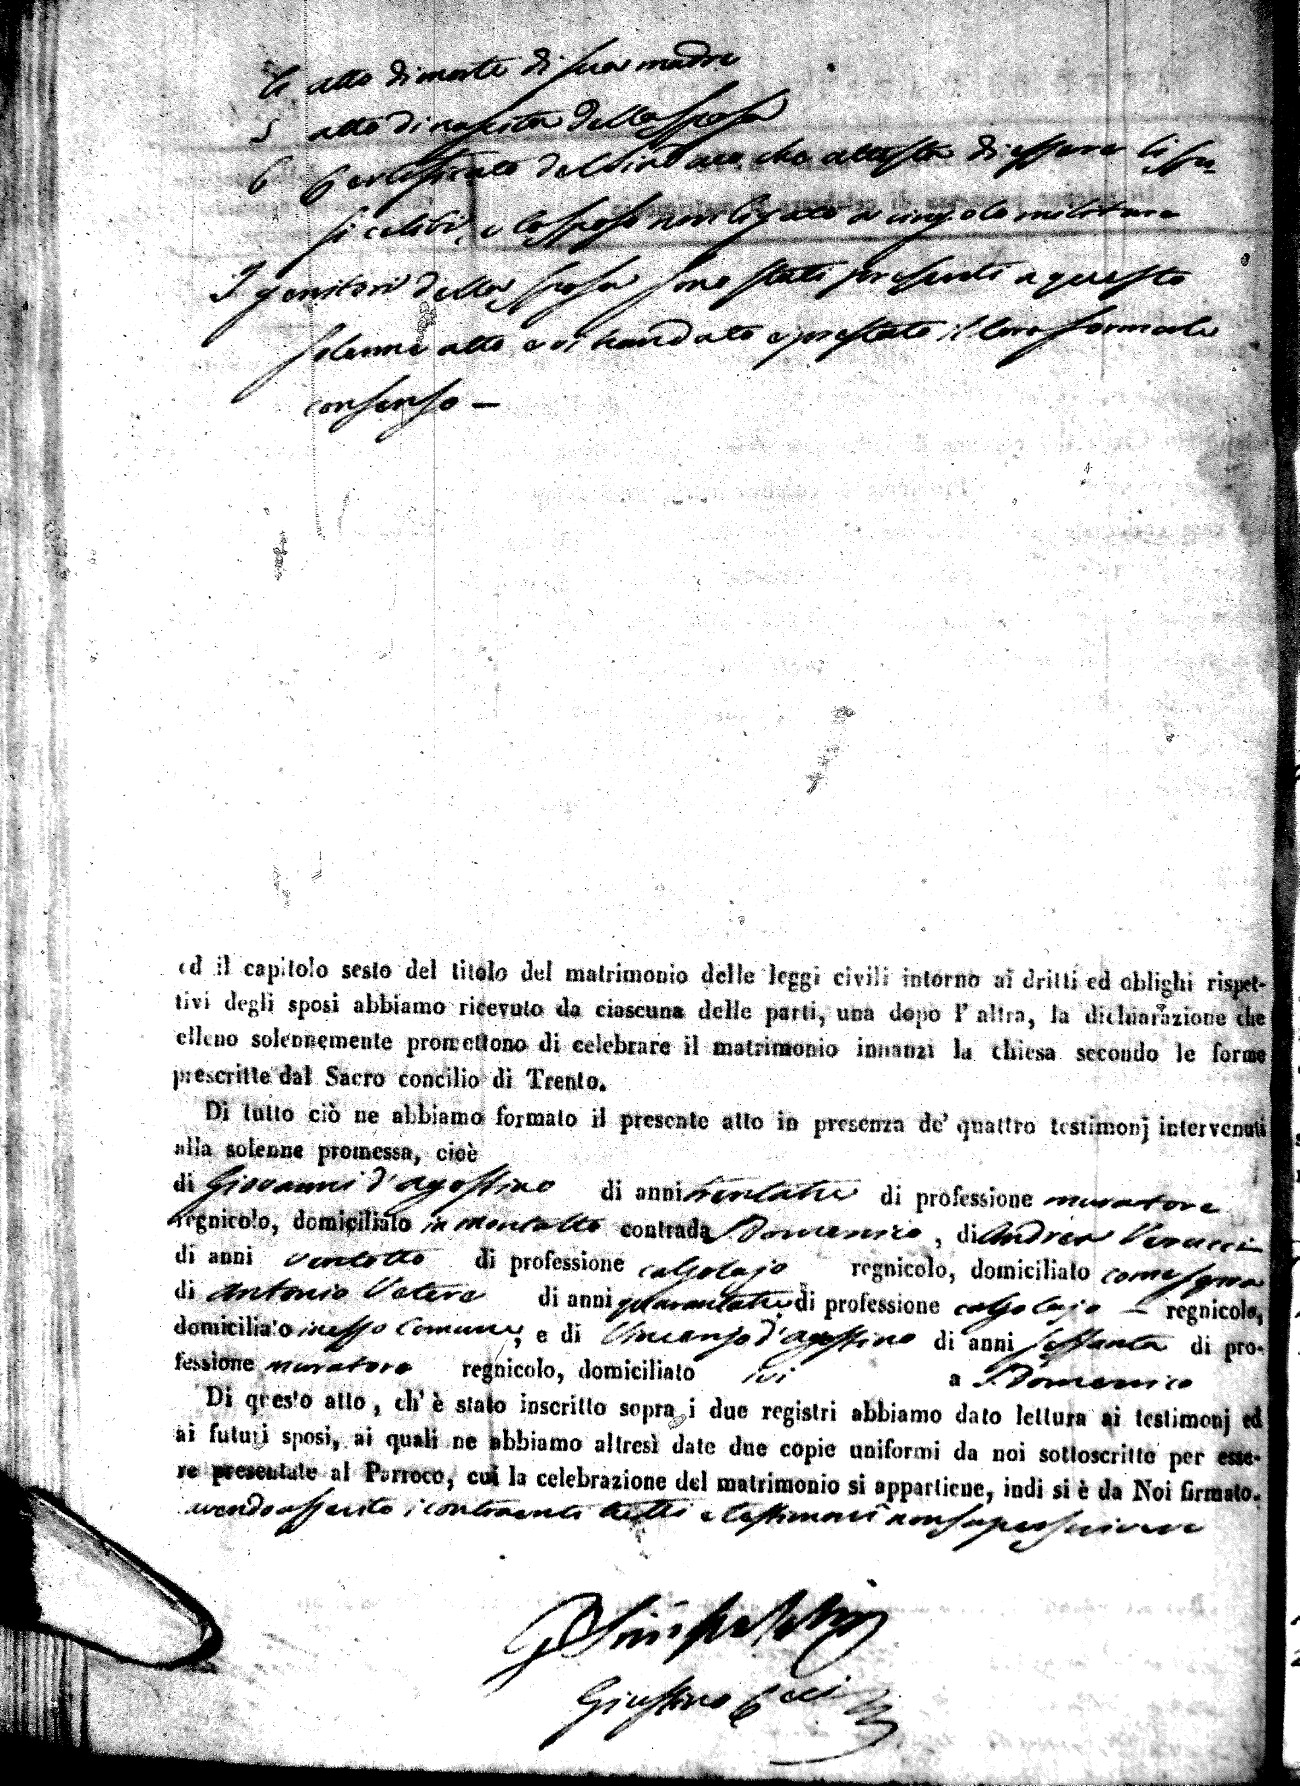 4 atto di morte di sua madre
5 atto di nascita della sposa
6 Certificato del Sindaco che attesta di essere li spo-
si celibi, e lo sposo non ligato a cingolo militare
I genitori della sposa sono stati presenti a questo
solenne atto e vi han dato e prestato il loro formale
consenso —
ed il capitolo sesto del titolo del matrimonio delle leggi civili intorno ai dritti ed oblighi rispet-
tivi degli sposi abbiamo ricevuto da ciascuna delle parti, una dopo l'altra, la dichiarazione che
elleno solennemente promettono di celebrare il matrimonio innanzi la chiesa secondo le forme
prescritte dal Sacro concilio di Trento.
Di tutto ciò ne abbiamo formato il presente atto in presenza de' quattro testimonj intervenuti
alla solenne promessa, cioè
di Giovanni d'agostino di anni trentatre di professione muratore
regnicolo, domiciliato in Montalto contrada S. Domenico, di Andrea Verucci
di anni ventotto di professione calzolajo regnicolo, domiciliato come sopra
di Antonio Vetere di anni quarantatre di professione calzolajo — regnicolo,
domiciliato in esso Comune, e di Vincenzo d'agostino di anni sessanta di pro-
fessione muratore regnicolo, domiciliato ivi a S. Domenico
Di questo atto, ch'è stato inscritto sopra i due registri abbiamo dato lettura ai testimonj ed
ai futuri sposi, ai quali ne abbiamo altresì date due copie uniformi da noi sottoscritte per esse-
re presentate al Parroco, cui la celebrazione del matrimonio si appartiene, indi si è da Noi firmato.
avendo asserito i contraenti tutti e testimonî non saper scrivere
Giustino